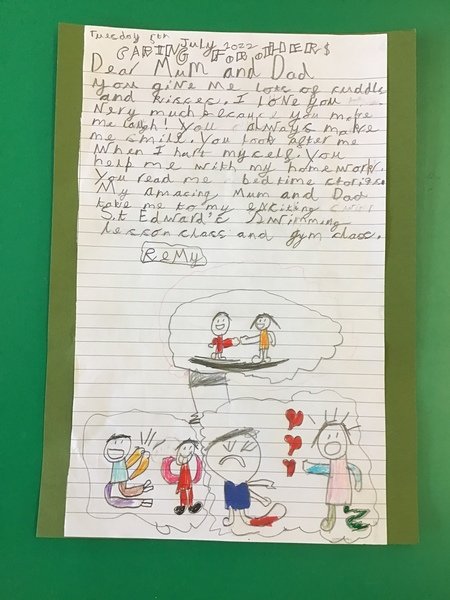 Tuesday 5th July 2022
CARING FOR OTHERS
Dear Mum and Dad
You give me lots of cuddls
and kisses. I love you
very much because you make
me laugh! You always make
me smile. You look after me
When I hurt myself. You
help me with my homework.
You read me bedtime stories.
My amazing Mum and Dad
take me to my exciting
St Edward's Swimming
lesson class and gym class.
Remy